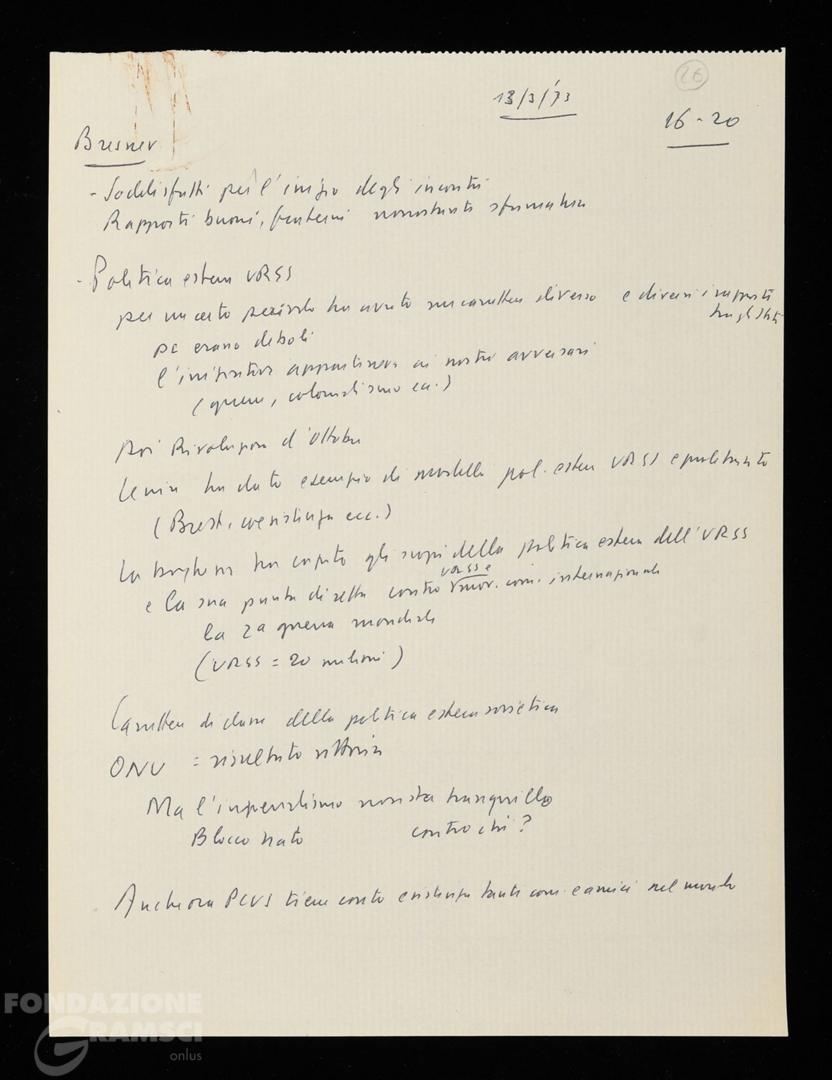 26
13/3/73
16-20
Bresnev
- Soddisfatti per l'inizio degli incontri
Rapporti buoni, fraterni nonostante sfumature
- Politica estera URSS
per un certo periodo ha avuto un carattere diverso e diversi i rapporti
tra gli Stati
PC erano deboli
l'iniziativa apparteneva ai nostri avversari
(guerre, colonialismo ecc.)
Poi Rivoluzione d'Ottobre
Lenin ha dato esempio di modello pol. estera URSS e proletariato
(Brest, coesistenza ecc.)
La borghesia ha capito gli scopi della politica estera dell'URSS
e la sua punta diretta contro URSS e mov. com. internazionale
la 2a guerra mondiale
(URSS = 20 milioni)
Carattere di classe della politica estera sovietica
ONU = risultato vittoria
Ma l'imperialismo non sta tranquillo
Blocco Nato contro chi?
Anche ora PCUS tiene conto esistenza tanti com. e amici nel mondo
FONDAZIONE
GRAMSCI
onlus